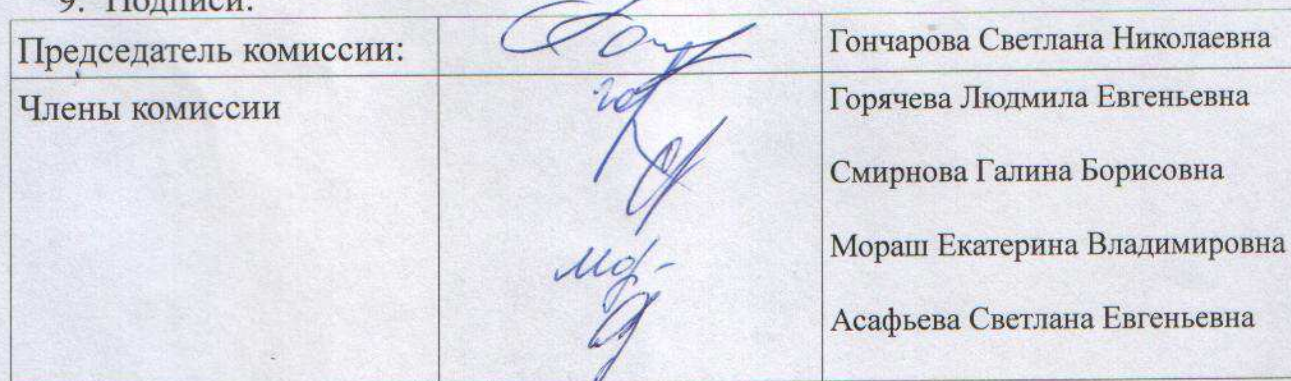 9. Подписи:
Председатель комиссии: Гончарова Светлана Николаевна
Члены комиссии Горячева Людмила Евгеньевна
Смирнова Галина Борисовна
Мораш Екатерина Владимировна
Асафьева Светлана Евгеньевна